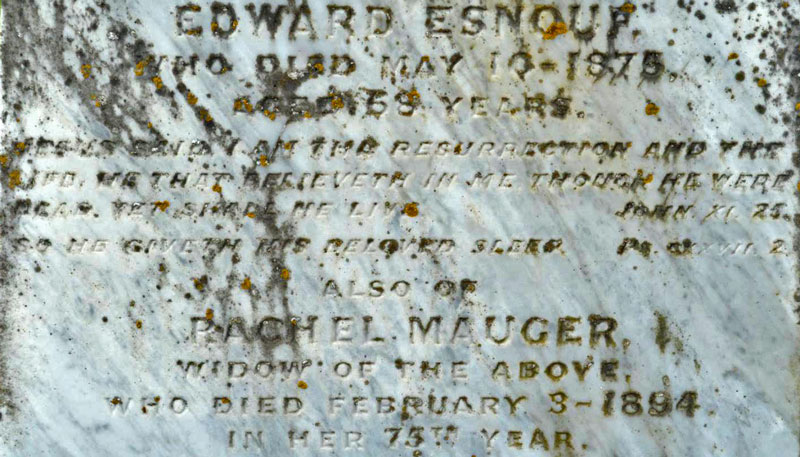 EDWARD ESNOUF,
WHO DIED MAY 10-1875.
AGED 58 YEARS.
JESUS SAID, I AM THE RESURRECTION AND THE
LIFE. HE THAT BELIEVETH IN ME, THOUGH HE WERE
DEAD, YET SHALL HE LIVE. JOHN. XI. 25.
SO HE GIVETH HIS BELOVED SLEEP. PS. CXXVII. 2.
ALSO OF
RACHEL MAUGER,
WIDOW OF THE ABOVE,
WHO DIED FEBRUARY 3-1894.
IN HER 75TH YEAR.